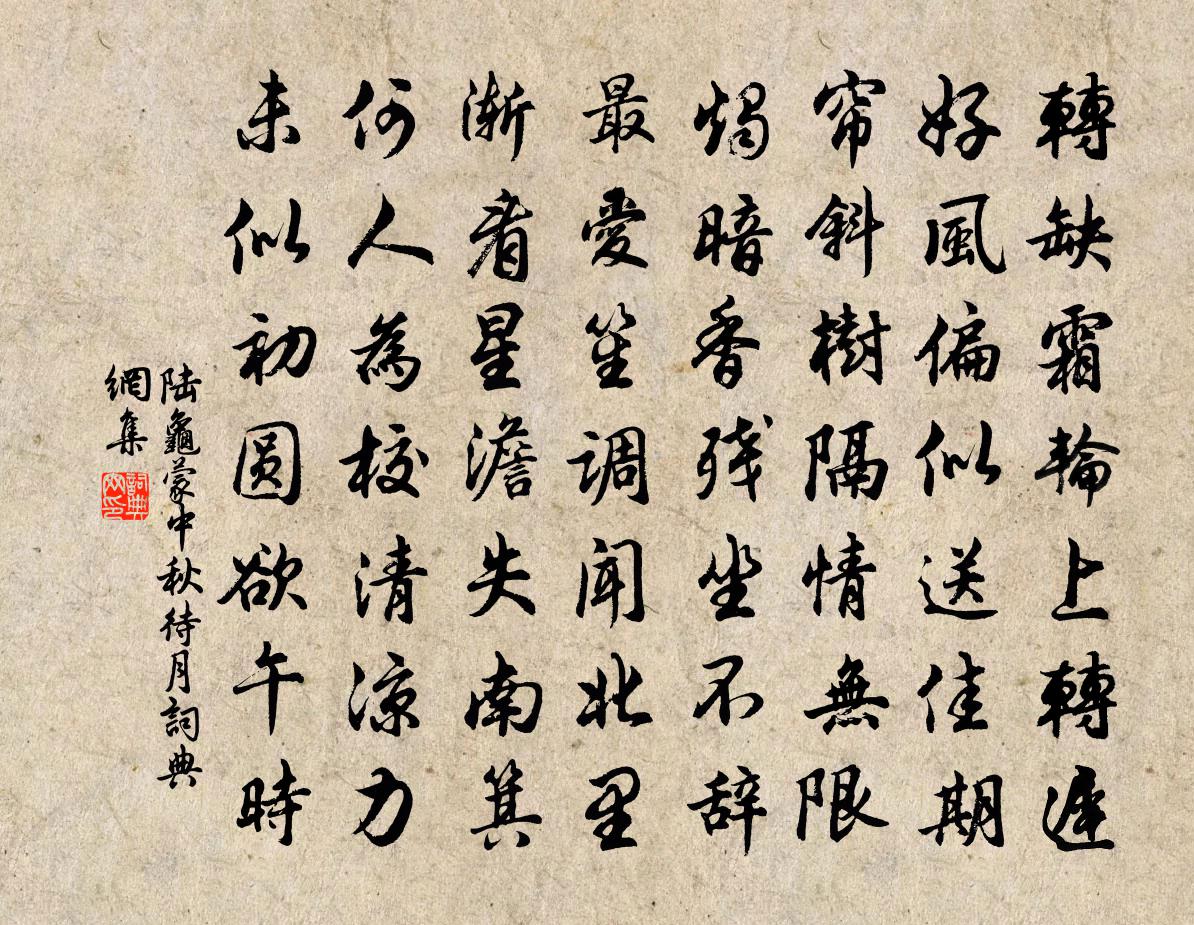 轉缺霜輪上轉遲
好風偏似送佳期
帘斜樹隔情無限
燭暗香殘坐不辞
最愛笙調闻北里
漸看星澹失南箕
何人為校清涼力
未似初圆欲午時
陆龜蒙中秋待月詞典
網集
詞典網印